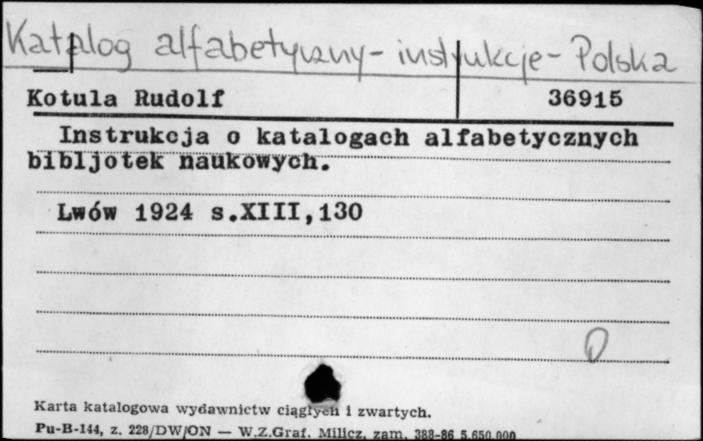 Katalog alfabetyczny - instrukcje - Polska
Kotula Rudolf 36915
Instrukcja o katalogach alfabetycznych
bibljotek naukowych.
Lwów 1924 s.XIII,130
Karta katalogowa wydawnictw ciągłych i zwartych.
Pu-B-144, z. 228/DW/ON — W.Z.Graf. Milicz, zam. 388-86 5.650.000